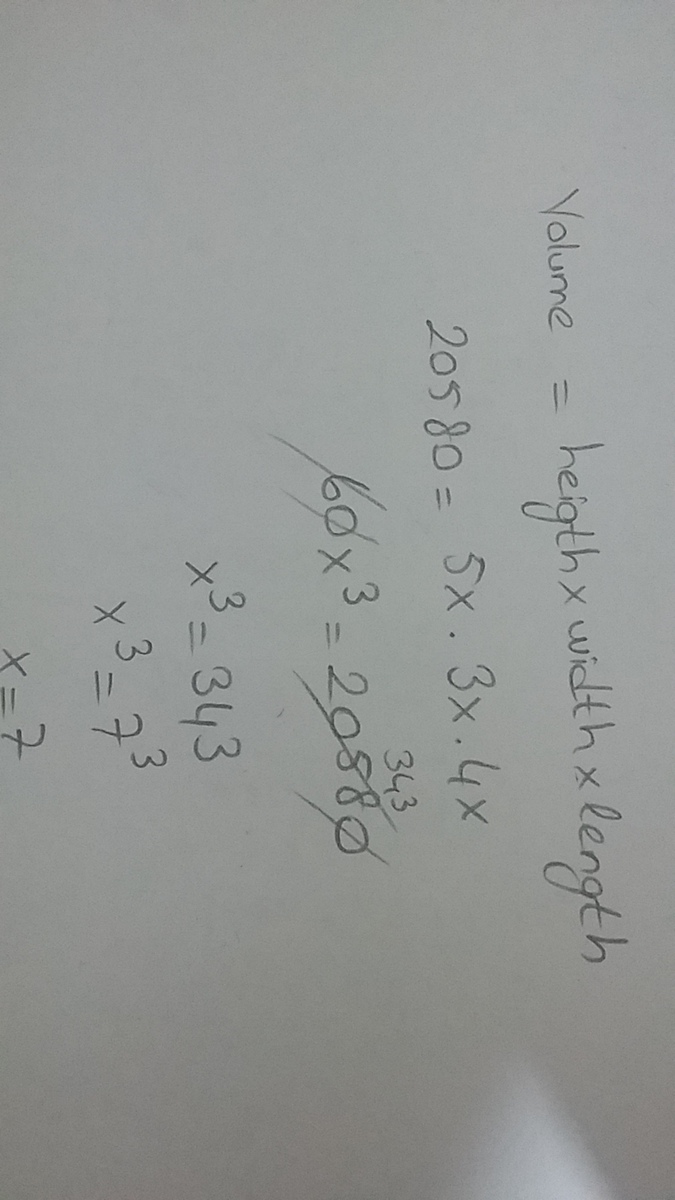 Volume = heigth x width x length
20580 = 5x . 3x . 4x
60x³ = 20580 343
x³ = 343
x³ = 7³
x = 7